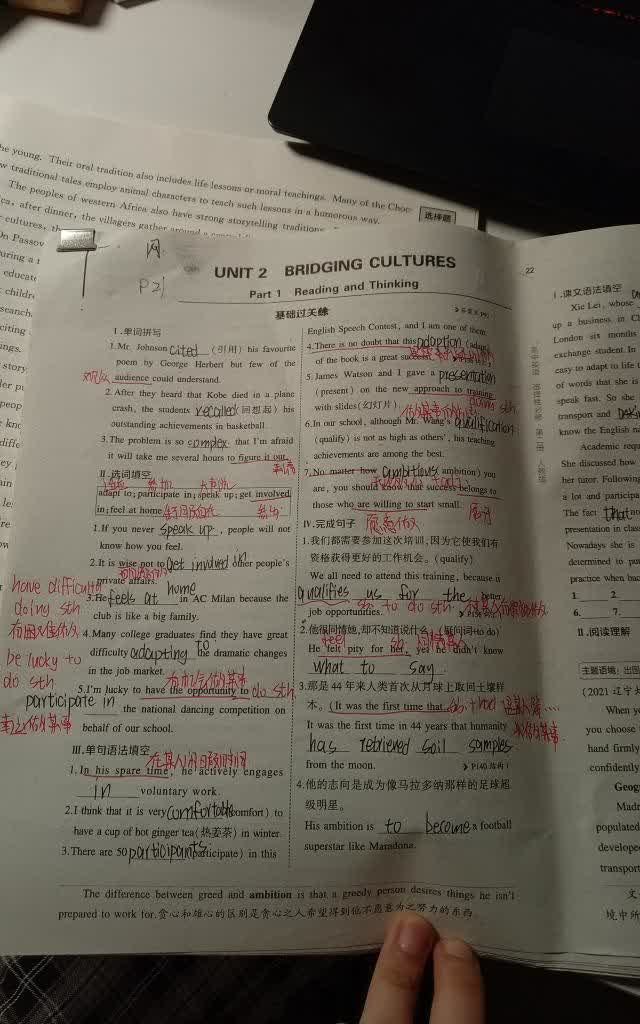 he young. Their oral tradition also includes life lessons or moral teachings. Many of the Choc-
w traditional tales employ animal characters to teach such lessons in a humorous way.
The peoples of western Africa also have strong storytelling traditions.
ca, after dinner, the villagers gather around a
选择题
网
P21
UNIT 2 BRIDGING CULTURES
Part 1 Reading and Thinking
基础过关练
Ⅰ.单词拼写
1.Mr. Johnson cited (引用) his favourite
poem by George Herbert but few of the
audience could understand.
2.After they heard that Kobe died in a plane
crash, the students recalled (回想起) his
outstanding achievements in basketball.
3.The problem is so complex that I'm afraid
it will take me several hours to figure it out.
Ⅱ.选词填空
适应 参加
adapt to; participate in; speak up; get involved
in; feel at home
1.If you never speak up, people will not
know how you feel.
2.It is wise not to get involved in other people's
private affairs.
3.He feels at home in AC Milan because the
club is like a big family.
have difficulty
doing sth
4.Many college graduates find they have great
difficulty adapting to the dramatic changes
in the job market.
be lucky to
do sth
5.I'm lucky to have the opportunity to do sth
participate in
the national dancing competition on
behalf of our school.
Ⅲ.单句语法填空
1.In his spare time, he actively engages
in voluntary work.
2.I think that it is very comfortable (comfort) to
have a cup of hot ginger tea(热姜茶) in winter.
3.There are 50 participants (participate) in this
English Speech Contest, and I am one of them.
4.There is no doubt that this adaption (adapt)
of the book is a great success.
5.James Watson and I gave a presentation
(present) on the new approach to training
doing sth
with slides(幻灯片).
6.In our school, although Mr. Wang's qualification
(qualify) is not as high as others', his teaching
achievements are among the best.
7.No matter how ambitious (ambition) you
are, you should know that success belongs to
those who are willing to start small.
愿意做
Ⅳ.完成句子
1.我们都需要参加这次培训,因为它使我们有
资格获得更好的工作机会。(qualify)
We all need to attend this training, because it
qualifies us for the better
job opportunities.
2.他很同情她,却不知道说什么。(疑问词+to do)
He felt pity for her, yet he didn't know
what to say.
3.那是44年来人类首次从月球上取回土壤样
本。(It was the first time that...)
It was the first time in 44 years that humanity
has retrieved soil samples
from the moon.
P140 结构1
4.他的志向是成为像马拉多纳那样的足球超
级明星。
His ambition is to become a football
superstar like Maradona.
The difference between greed and ambition is that a greedy person desires things he isn't
prepared to work for.贪心和雄心的区别是贪心之人希望得到他不愿意为之努力的东西。
22
Ⅰ.课文语法填空
Xie Lei, whose
up a business in Ch
London six months
exchange student. In
easy to adapt to life t
of words that she is
speak fast. So she
transport and
know the English na
Academic requ
She discussed how
her tutor. Following
a lot and participa
The fact that no
presentation in class
Nowadays she is
determined to pur
practice when bac
1. 2.
6. 7.
Ⅱ.阅读理解
主题语境:出国
(2021 辽宁
When yo
you choose
hand firmly
confidently
Geogr
Madr
populated
develope
transport
文
境中所